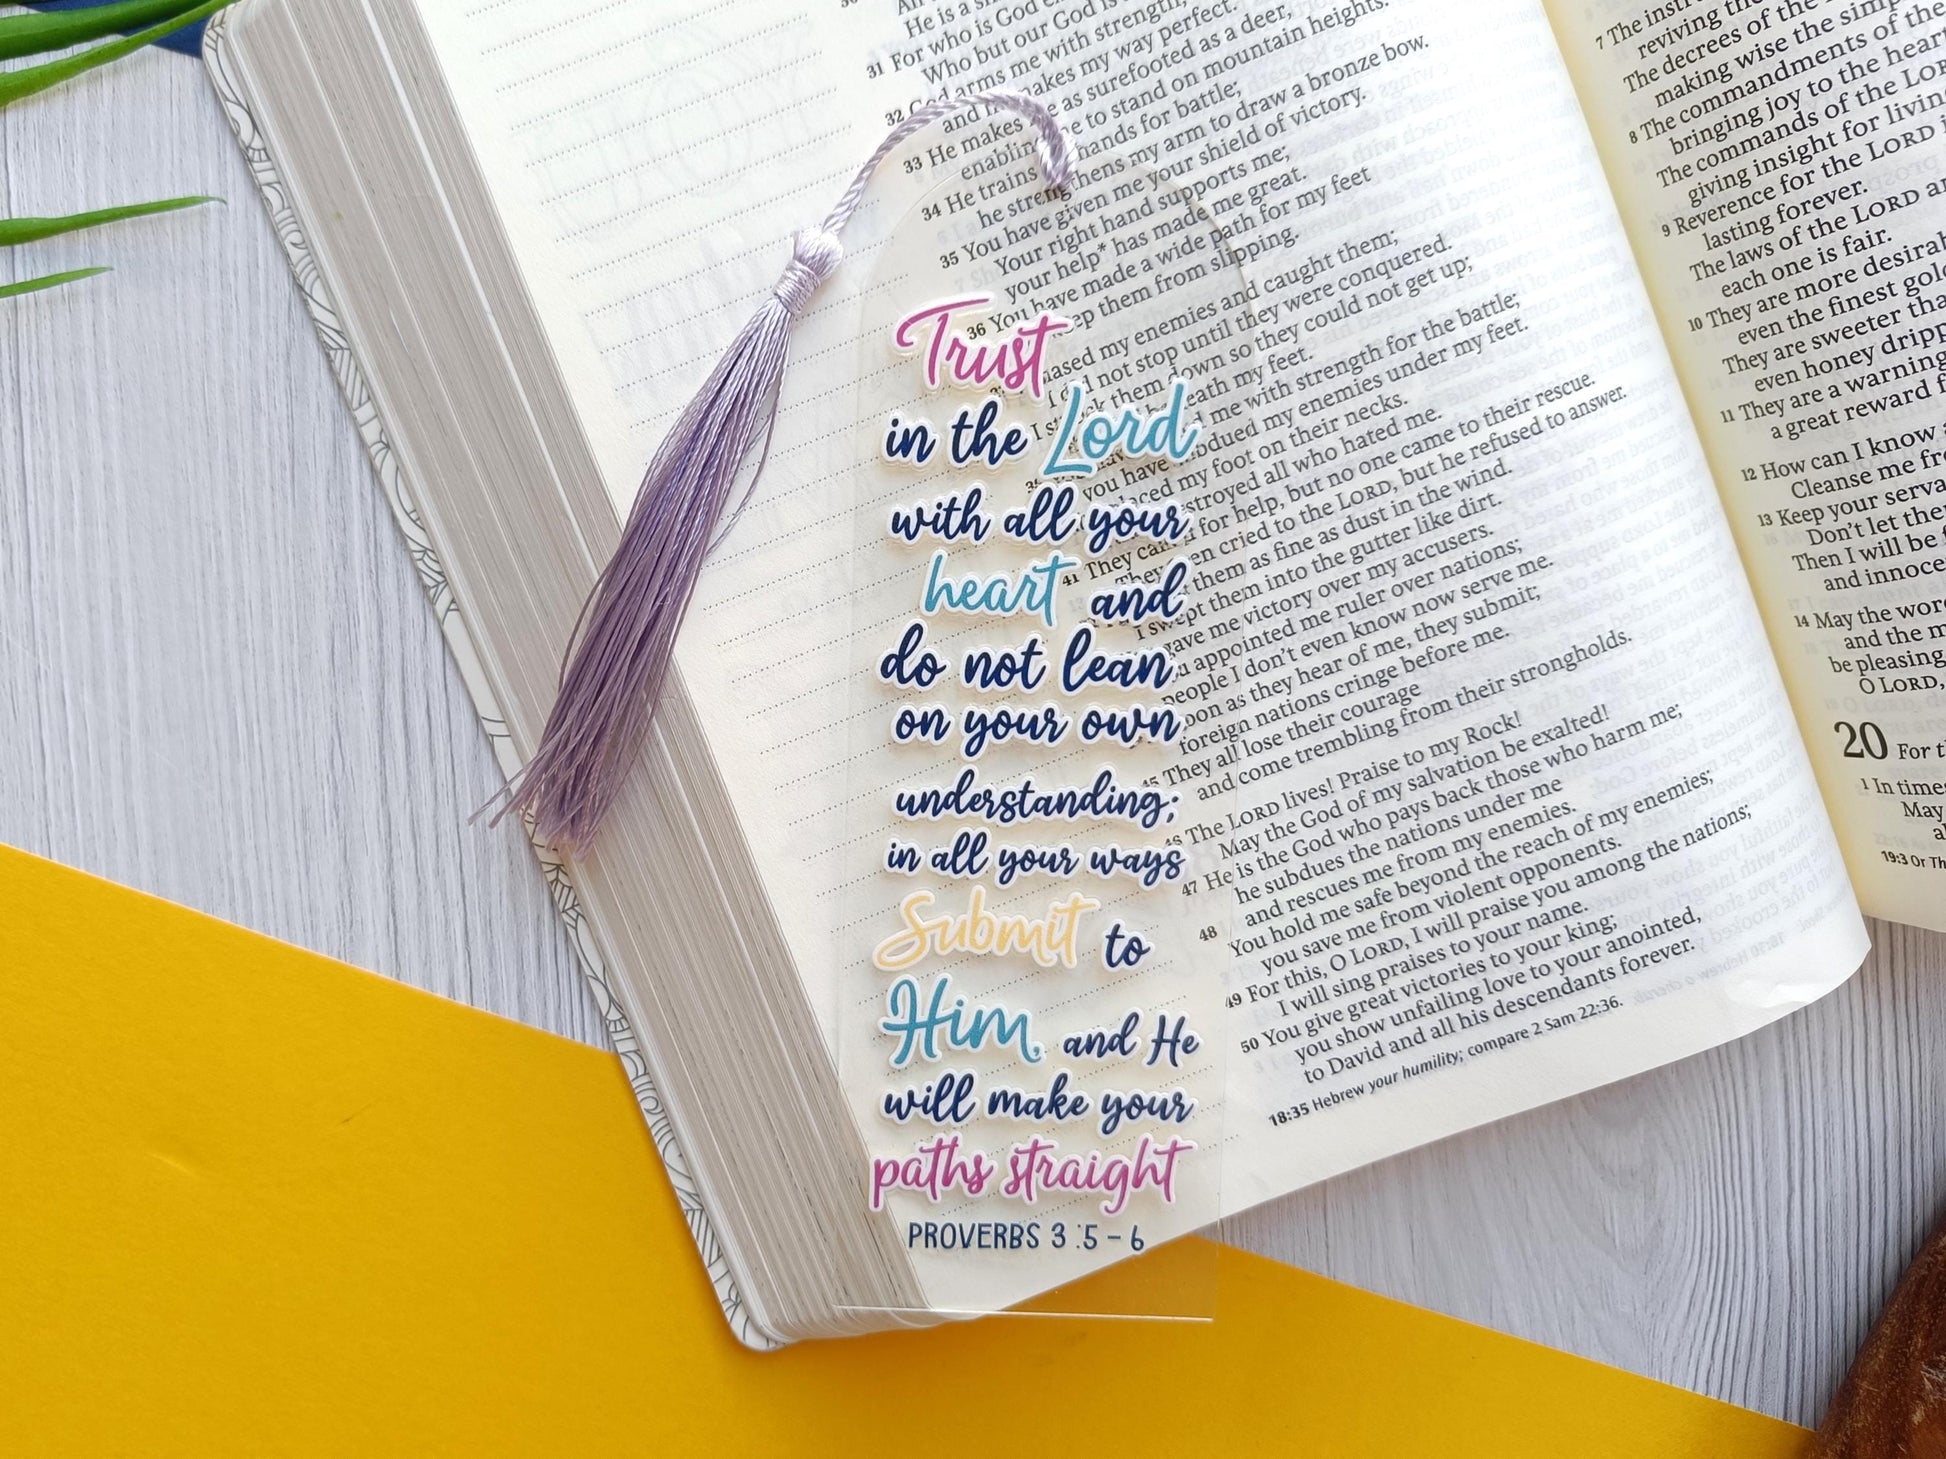 Trust
in the Lord
with all your
heart and
do not lean
on your own
understanding;
in all your ways
Submit to
Him, and He
will make your
paths straight
PROVERBS 3:5-6
He is a
31 For who is God
Who but our God is
God arms me with strength,
makes my way perfect.
He makes me as surefooted as a deer,
to stand on mountain heights.
34 He trains hands for battle;
he strengthens my arm to draw a bronze bow.
35 You have given me your shield of victory.
Your right hand supports me;
your help* has made me great.
36 You have made a wide path for my feet
keep them from slipping.
my enemies and caught them;
not stop until they were conquered.
them down so they could not get up;
beneath my feet.
me with strength for the battle;
you have subdued my enemies under my feet.
placed my foot on their necks.
destroyed all who hated me.
41 They called for help, but no one came to their rescue.
They even cried to the LORD, but he refused to answer.
them as fine as dust in the wind.
I swept them into the gutter like dirt.
gave me victory over my accusers.
appointed me ruler over nations;
people I don't even know now serve me.
soon as they hear of me, they submit;
foreign nations cringe before me.
45 They all lose their courage
and come trembling from their strongholds.
46 The LORD lives! Praise to my Rock!
May the God of my salvation be exalted!
47 He is the God who pays back those who harm me;
he subdues the nations under me
48 and rescues me from my enemies.
You hold me safe beyond the reach of my enemies;
you save me from violent opponents.
49 For this, O LORD, I will praise you among the nations;
I will sing praises to your name.
50 You give great victories to your king;
you show unfailing love to your anointed,
to David and all his descendants forever.
18:35 Hebrew your humility; compare 2 Sam 22:36.
7 The
reviving the
The decrees of the
making wise the
8 The commandments of the
bringing joy to the heart
The commands of the LORD
giving insight for
9 Reverence for the LORD
lasting forever.
The laws of the LORD
each one is fair.
10 They are more
even the finest gold
They are sweeter
even honey
11 They are a warning
a great reward
12 How can I know
Cleanse me
13 Keep your
Don't let
Then I will be
and
14 May the
and the
be pleasing
O LORD,
20 For
1 In
May
19:3 Or